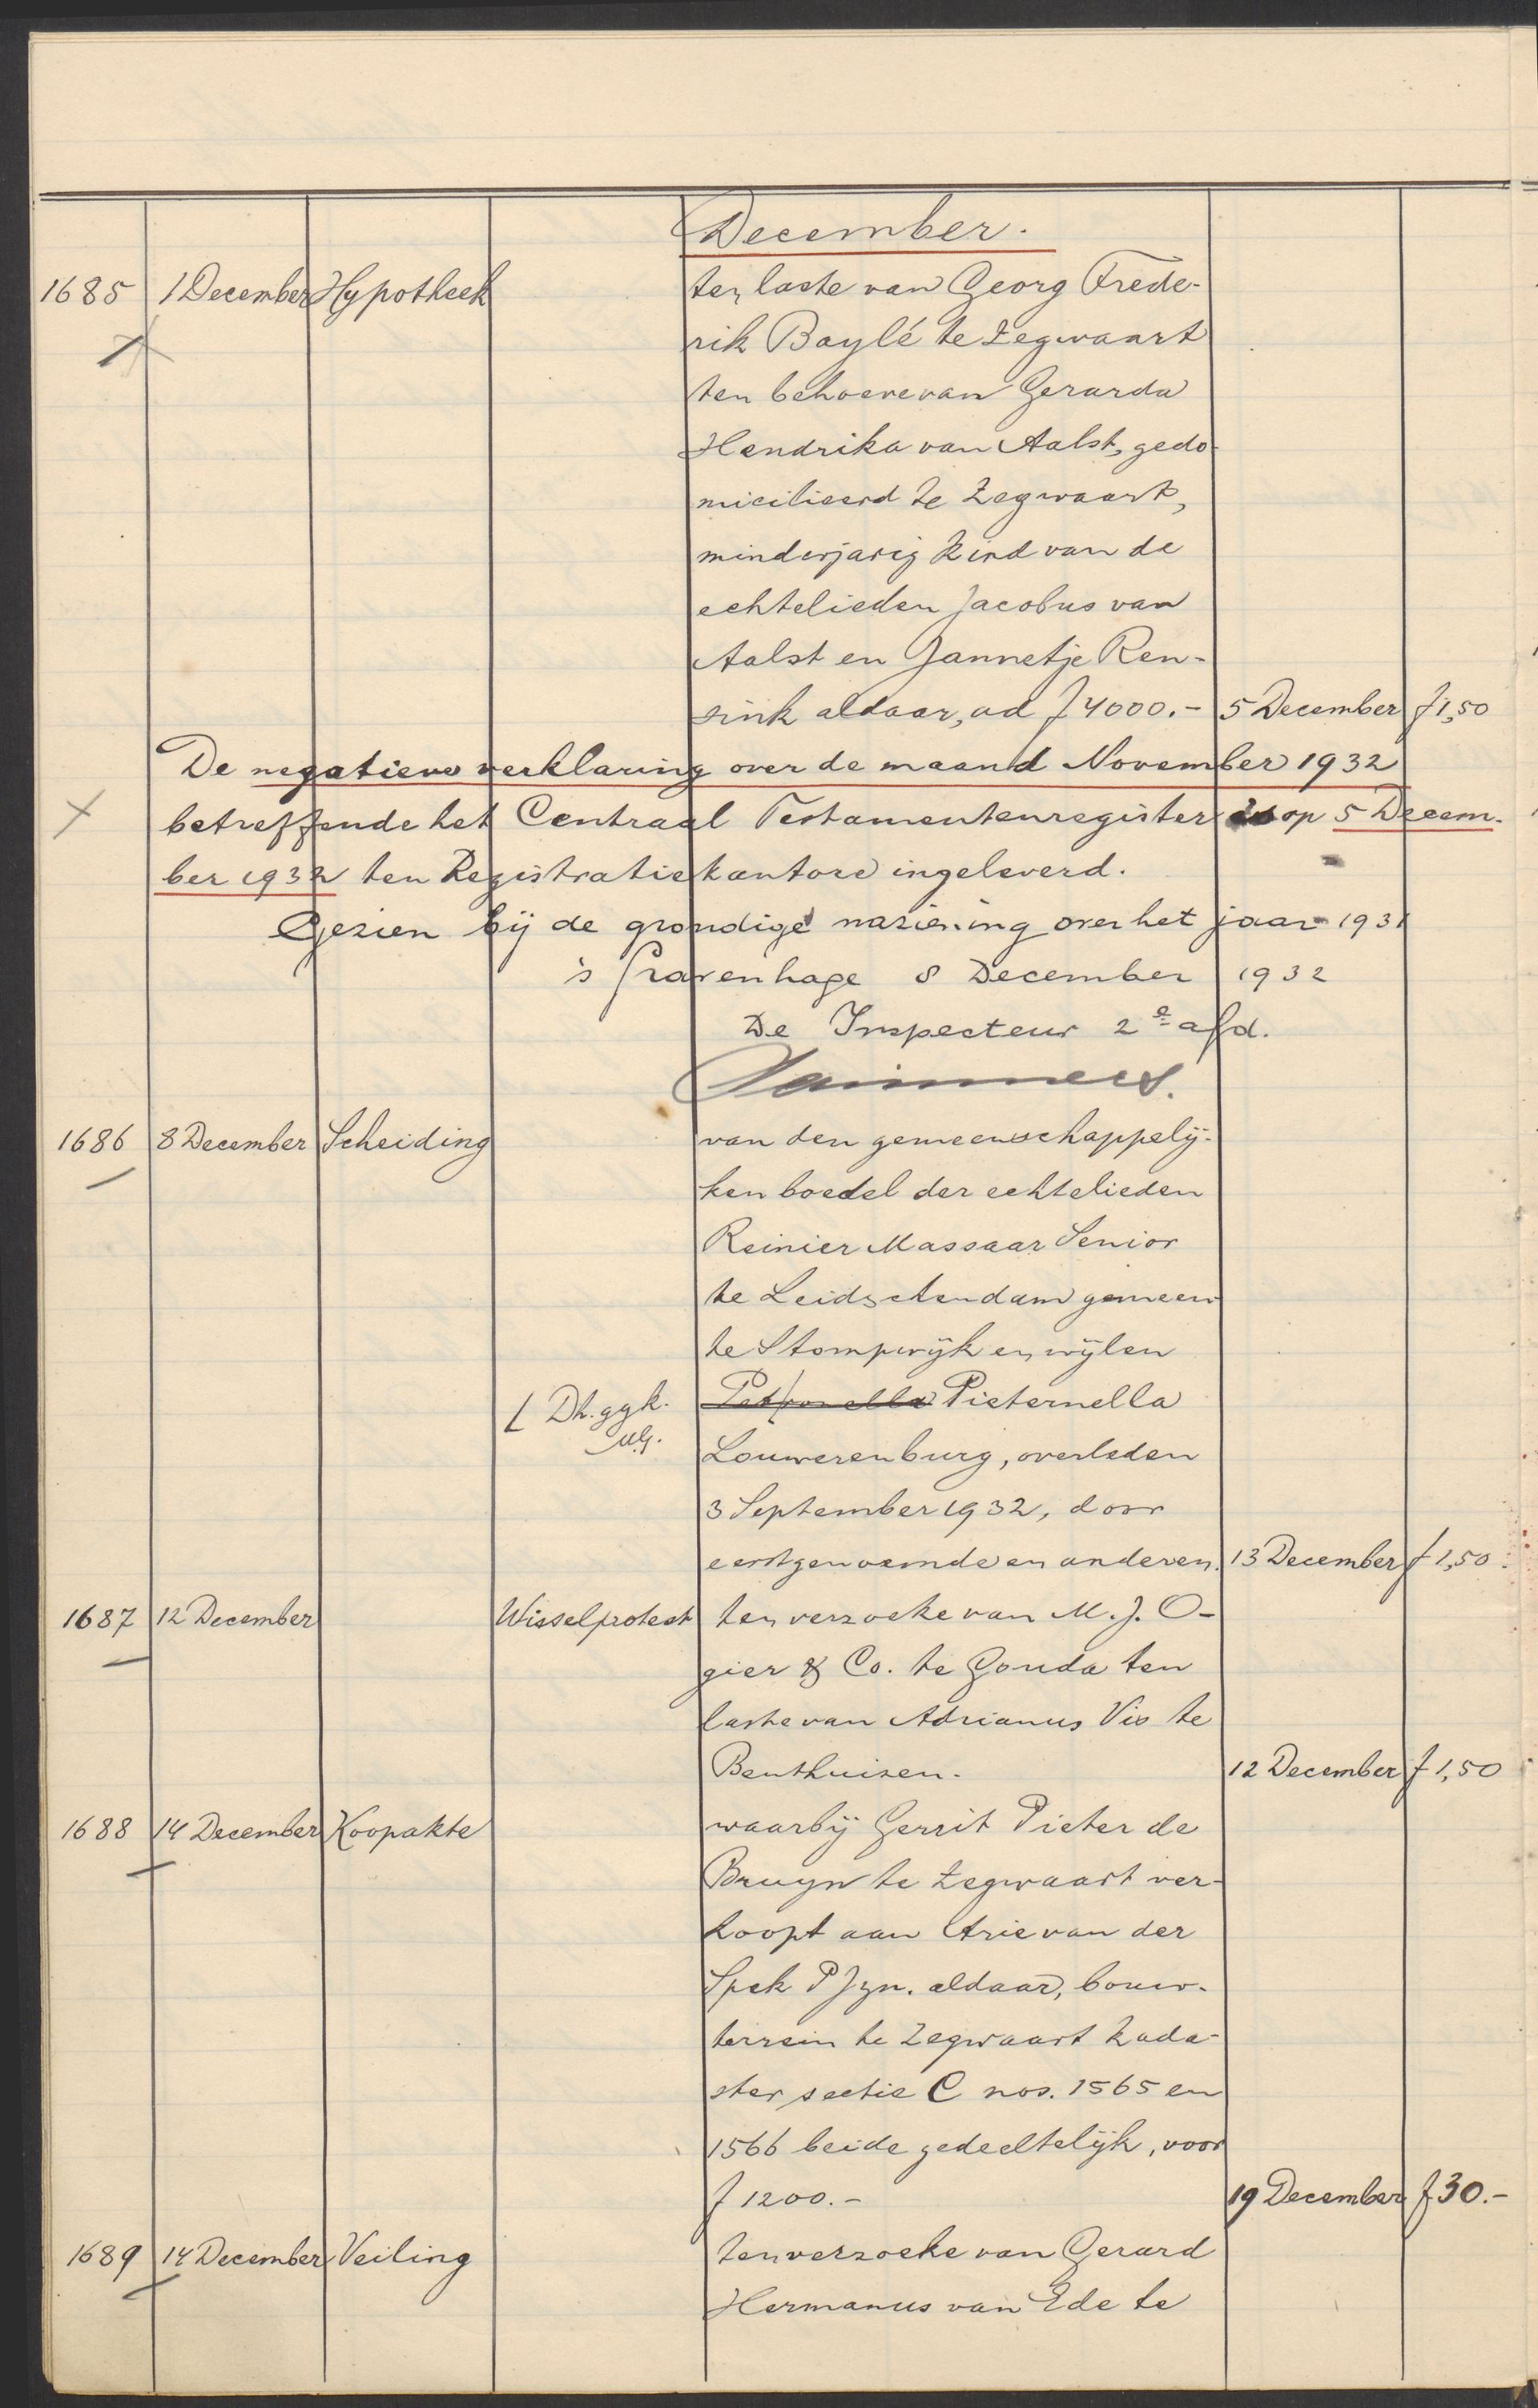 December.
1685 1 December Hypotheek ten laste van Georg Frede-
rik Baylé te Zegwaart
ten behoeve van Gerarda
Hendrika van Aalst, gedo-
micilieerd te Zegwaart,
minderjarig kind van de
echtelieden Jacobus van
Aalst en Jannetje Ren-
sink aldaar, ad f 4000.- 5 December f 1,50
De negatieve verklaring over de maand November 1932
betreffende het Centraal Testamentenregister is op 5 Decem-
ber 1932 ten Registratiekantore ingeleverd.
Gezien bij de grondige naziening over het jaar 1931
's Gravenhage 8 December 1932
De Inspecteur 2e afd.
1686 8 December Scheiding van den gemeenschappelij-
ken boedel der echtelieden
Reinier Massaar Senior
te Leidschendam gemeen-
te Stompwijk en wijlen
L Dh. ggk. Petronella Pieternella
Louwerenburg, overleden
3 September 1932, door
eerstgenoemde en anderen. 13 December f 1,50.
1687 12 December Wisselprotest ten verzoeke van M. J. O-
gier & Co. te Gouda ten
laste van Adrianus Vis te
Benthuizen. 12 December f 1,50
1688 14 December Koopakte waarbij Gerrit Pieter de
Bruyn te Zegwaart ver-
koopt aan Arie van der
Spek P Jzn. aldaar, bouw-
terrein te Zegwaart kada-
ster sectie C nos. 1565 en
1566 beide gedeeltelijk, voor
f 1200.- 19 December f 30.-
1689 14 December Veiling ten verzoeke van Gerard
Hermanus van Ede te